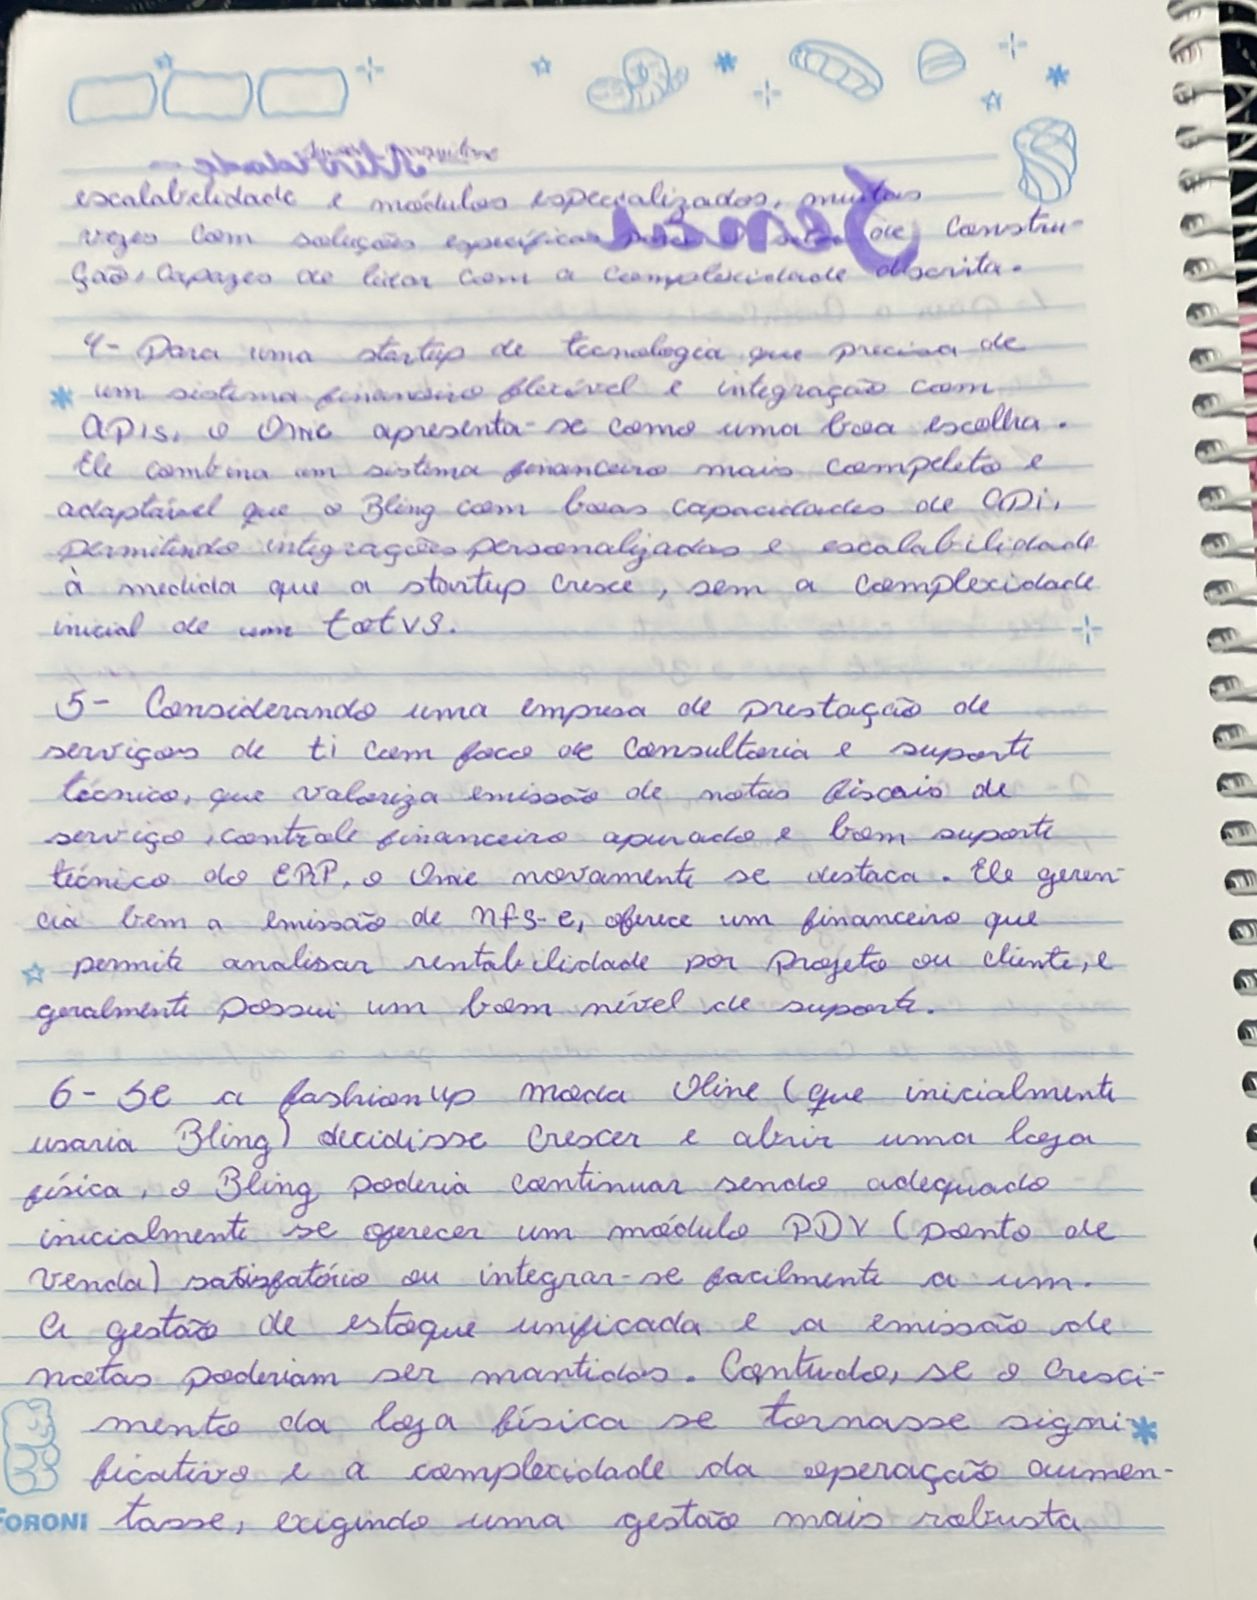 escalabilidade e módulos especializados, muitas
vezes com soluções específicas para o setor de constru-
ção, capazes de lidar com a complexidade descrita.
4- Para uma startup de tecnologia que precisa de
um sistema financeiro flexível e integração com
APIs, o Omie apresenta-se como uma boa escolha.
Ele combina um sistema financeiro mais completo e
adaptável que o Bling com boas capacidades de API,
permitindo integrações personalizadas e escalabilidade
à medida que a startup cresce, sem a complexidade
inicial de um totvs.
5- Considerando uma empresa de prestação de
serviços de ti com foco de consultoria e suporte
técnico, que valoriza emissão de notas fiscais de
serviço, controle financeiro apurado e bom suporte
técnico do ERP, o Omie novamente se destaca. Ele geren-
cia bem a emissão de nfs-e, oferece um financeiro que
permite analisar rentabilidade por projeto ou cliente, e
geralmente possui um bom nível de suporte.
6- Se a fashionup moda Oline (que inicialmente
usaria Bling) decidisse crescer e abrir uma loja
física, o Bling poderia continuar sendo adequado
inicialmente se oferecer um módulo PDV (ponto de
venda) satisfatório ou integrar-se facilmente a um.
A gestão de estoque unificada e a emissão de
notas poderiam ser mantidas. Contudo, se o cresci-
mento da loja física se tornasse signi
ficativo e a complexidade da operação aumen-
FORONI tasse, exigindo uma gestão mais robusta